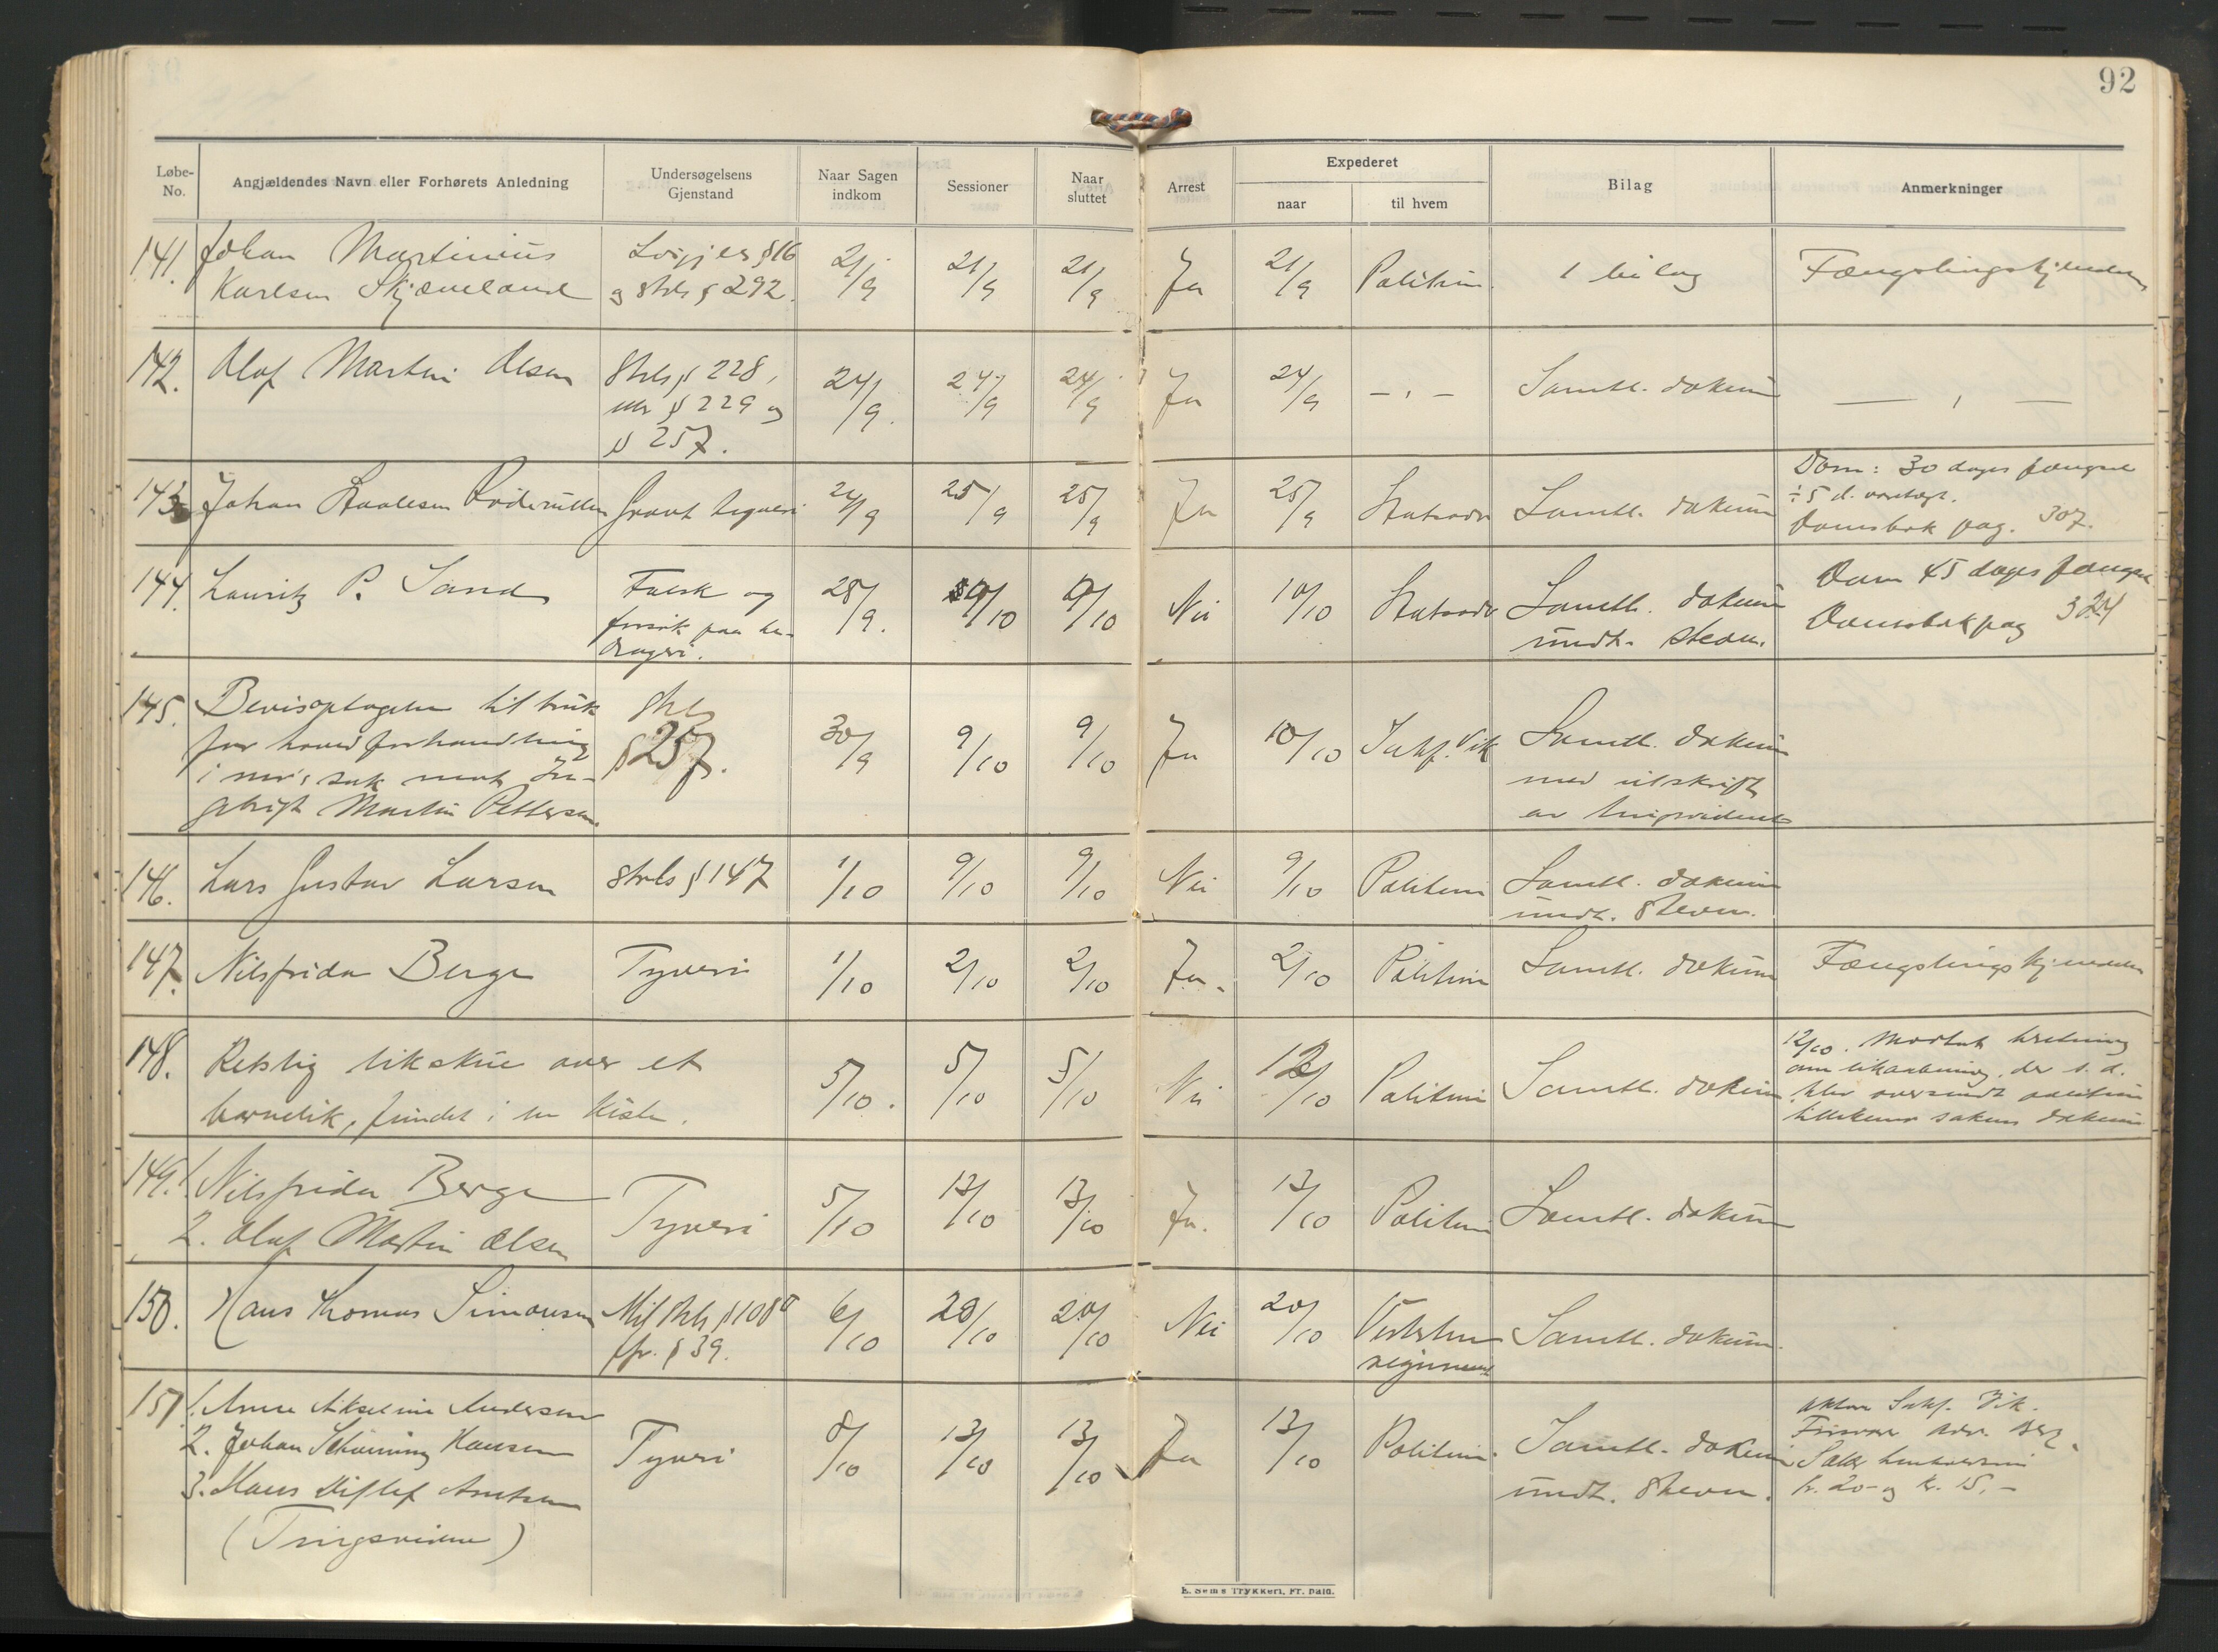 92
Løbe-No. Angjældendes Navn eller Forhørets Anledning Undersøgelsens Gjenstand Naar Sagen indkom Sessioner Naar sluttet Arrest Expederet naar til hvem Bilag Anmerkninger
141. Johan Martinius Løsgj. § 16 21/9 21/9 21/9 Ja 21/9 Politiet 1 bilag Fængslingskjendelse
Karlsen Skjæveland og strls § 292.
142. Olaf Martin Olsen Strls § 228, 24/9 24/9 24/9 Ja 24/9 - " - Samtl. dokum — " —
§ 229 og
§ 257.
143. Johan 24/9 25/9 25/9 Ja 25/9 Statsadv Samtl. dokum Dom: 30 dages fængsel
÷ 5 d.
Domsbok pag. 307.
144. Lauritz P. Sand Falsk og 28/9. 9/10 9/10 Nei 10/10 Statsadv Samtl. dokum Dom 45 dages fængsel
forsøk paa be- undt. stevn. Domsbok pag 324
drageri.
145. Bevisoptagelse til bruk Strls 30/9 9/10 9/10 Ja 10/10 Sakf. Vik Samtl. dokum
for hovedforhandling § 257. med utskrift
i sak mot In- av
gebrigt Martin Pettersen
146. Lars Gustav Larsen Strls § 147 1/10 9/10 9/10 Nei 9/10 Politiet Samtl. dokum
undt. stevn.
147. Nilsfrida Berge Tyveri 1/10 2/10 2/10 Ja. 2/10 Politiet Samtl. dokum Fængslingskjendelse
148. Retslig likskue over et 5/10. 5/10 5/10 Nei 12/10 Politiet Samtl. dokum 12/10. Mottat beretning
barnelik, fundet i en kiste. om likaabning, der s. d.
blev oversendt politiet
tillikemed sakens dokum
149. 1. Nilsfrida Berge Tyveri 5/10 13/10 13/10 Ja. 13/10 Politiet Samtl. dokum
2. Olaf Martin Olsen
150. Hans Thomas Simonsen Mil strls § 108 6/10 20/10 20/10 Nei 20/10 Samtl. dokum.
jfr. § 39. regiment
151. 1. Anna Akseline Andersen Tyveri 8/10 13/10 13/10 Ja 13/10 Politiet. Samtl. dokum Aktor Sakf. Vik.
2. Johan Hansen undt. stevn. Forsvarer Adv.
3. Hans Ditlef Arntsen Salær henholdsvis
kr. 20 - og kr. 15, -
(Tingsvidne)
E. Sems Trykkeri, Fr.hald.